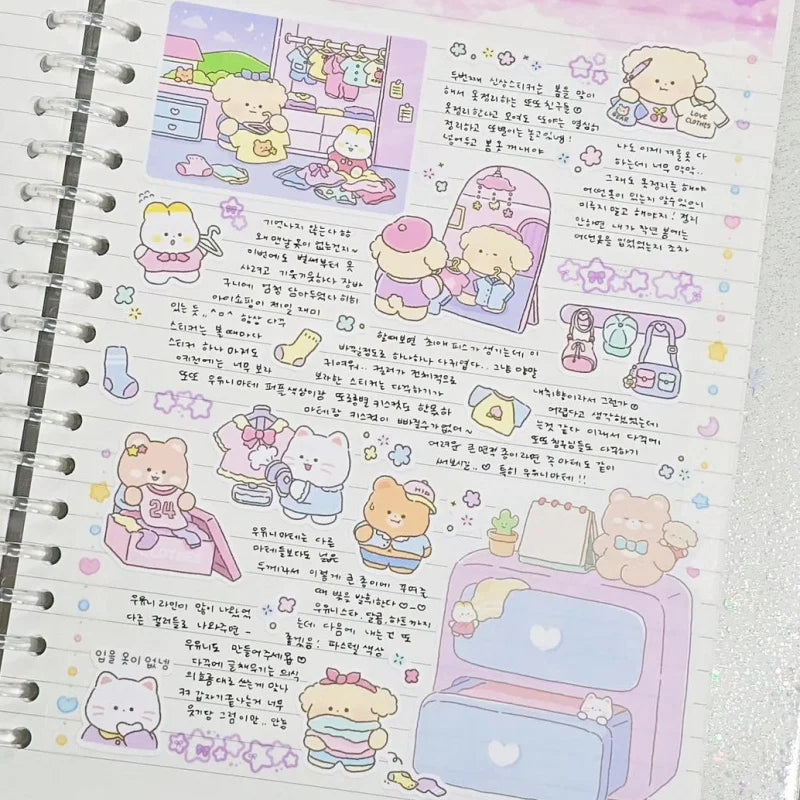 두번째 신상스티커는 봄을 맞이
해서 옷정리하는 또또친구들
옷정리한다고 모여도 또야는 열심히
정리하고 또뱅이는 놀고있냉!
넣어두고 봄옷 꺼내야
BEAR
LOVE
CLOTHES
나도 이제 겨울옷 다
하는데 너무 막막..
그래도 옷정리를 해야
어떤옷이 있는지 알수있으니
미루지 말고 해야지! 정리
안하면 내가 작년 봄에는
어떤옷을 입었었는지 조차
기억나지 않는다
왜 맨날 옷이 없는건지~
이번에도 벌써부터 옷
사려고 기웃기웃하다 장바
구니에 엄청 담아두었다 히히
아이쇼핑이 제일 재미
있는 듯.. ^o^ 항상 다꾸
스티커는 볼 때마다
스티커 하나 마저도
0키전에는 너무 보라
또또 우유니마테
할때보면 최애 피스가 생기는데 이
하나하나 다귀엽다.. 그냥 말랑
귀여워.. 컬러가 전체적으로
보라한 스티커는 다꾸하기가
마테랑 키스컷이 빠질수가없어~
내취향이라서 그런가
어렵다고 생각했었는데
는것 같다 이래서 다꾸에
또또친구님들도 다꾸하기
어려운 큰 면적 종이라면 꼭 마테도 같이
써보시길.. ♡ 특히 우유니마테!!
24
CLOTHES
우유니마테는 다른
마테들보다도 넓은
두께라서 이렇게 큰 종이에 꾸며줄
때 빛을 발휘한다 ♡-♡
우유니스타, 달콤, 하트까지
는데 다음에 내는건 또
좋겠음! 파스텔 색상
우유니라인이 많이 나왔었
다른 컬러들로 나와주면 -
우유니도 만들어주세욥 ♡
다꾸에 글채우기는 의식
의흐름대로 쓰는게 맞나
ㅋㅋ 갑자기끝나는거 너무
웃기당 그럼이만.. 안농
입을 옷이 없넹